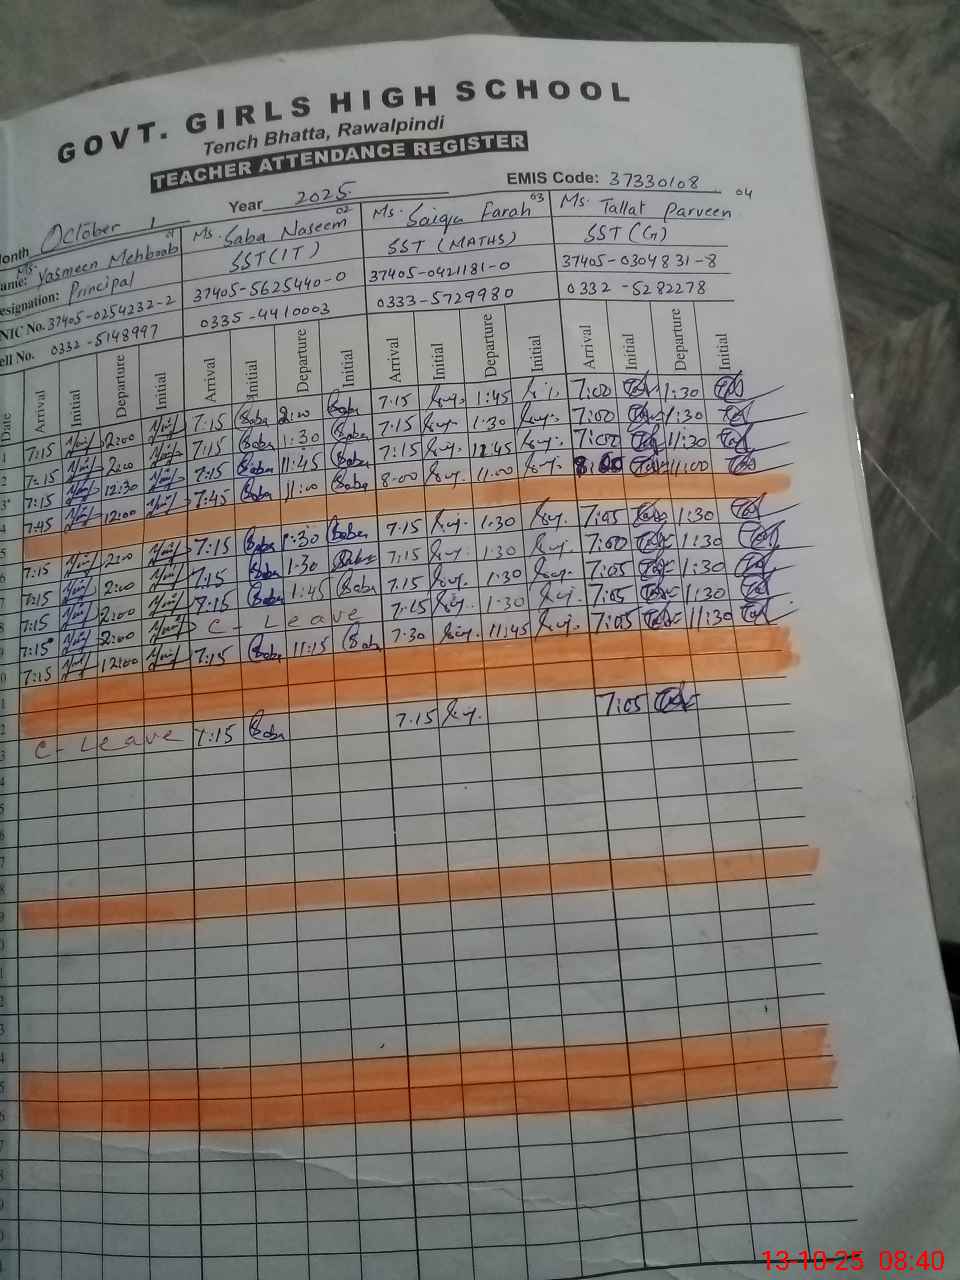 GOVT. GIRLS HIGH SCHOOL
Tench Bhatta, Rawalpindi
TEACHER ATTENDANCE REGISTER
EMIS Code: 37330108
Month October Year 2025
Name: Ms. Yasmeen Mehboob 01 Ms. Saba Naseem 02 Ms. Saiqa Farah 03 Ms. Tallat Parveen 04
Designation: Principal SST (IT) SST (MATHS) SST (G)
NIC No. 37405-0254232-2 37405-5625440-0 37405-0421181-0 37405-0304831-8
Cell No. 0332-5148997 0335-4410003 0333-5729980 0332-5282278
Date Arrival Initial Departure Initial Arrival Initial Departure Initial Arrival Initial Departure Initial Arrival Initial Departure Initial
1 7:15 2:00 7:15 Saba 2:00 Saba 7:15 1:45 7:00 1:30
2 7:15 2:00 7:15 Saba 1:30 Saba 7:15 1:30 7:00 1:30
3 7:15 12:30 7:15 Saba 11:45 Saba 7:15 11:45 7:00 11:30
4 7:45 12:00 7:45 Saba 11:00 Saba 8:00 11:00 8:00 11:00
5
6 7:15 2:00 7:15 Saba 1:30 Saba 7:15 1:30 7:05 1:30
7 7:15 2:00 7:15 Saba 1:30 Saba 7:15 1:30 7:00 1:30
8 7:15 2:00 7:15 Saba 1:45 Saba 7:15 1:30 7:05 1:30
9 7:15 2:00 C- Leave 7:15 1:30 7:05 1:30
7:15 12:00 7:15 Saba 11:15 Saba 7:30 11:45 7:05 11:30
1
2
3 C- Leave 7:15 Saba 7:15 7:05
4
5
6
7
8
9
0
1
2
3
4
5
6
7
8
9
0
13-10-25 08:40